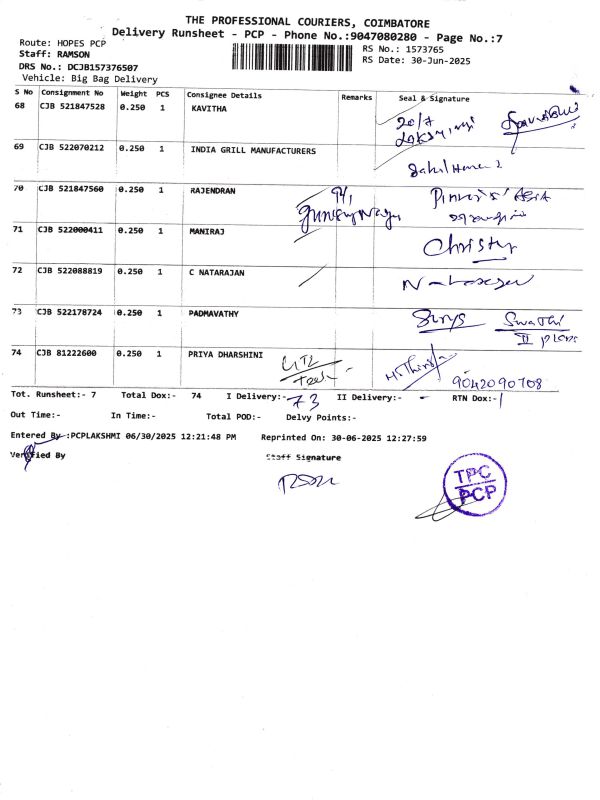 THE PROFESSIONAL COURIERS, COIMBATORE
Delivery Runsheet - PCP - Phone No.:9047080280 - Page No.:7
Route: HOPES PCP
RS No.: 1573765
Staff: RAMSON
RS Date: 30-Jun-2025
DRS No.: DCJB157376507
Vehicle: Big Bag Delivery
S No Consignment No Weight PCS Consignee Details Remarks Seal & Signature
68 CJB 521847528 0.250 1 KAVITHA
69 CJB 522070212 0.250 1 INDIA GRILL MANUFACTURERS
70 CJB 521847560 0.250 1 RAJENDRAN
71 CJB 522000411 0.250 1 MANIRAJ Christy
72 CJB 522088819 0.250 1 C NATARAJAN Natarajan
73 CJB 522178724 0.250 1 PADMAVATHY Surya Swathi
II
74 CJB 81222600 0.250 1 PRIYA DHARSHINI
9042090708
Tot. Runsheet:- 7 Total Dox:- 74 I Delivery:- 73 II Delivery:- - RTN Dox:- 1
Out Time:- In Time:- Total POD:- Delvy Points:-
Entered By :PCPLAKSHMI 06/30/2025 12:21:48 PM Reprinted On: 30-06-2025 12:27:59
Verified By Staff Signature
TPC
PCP